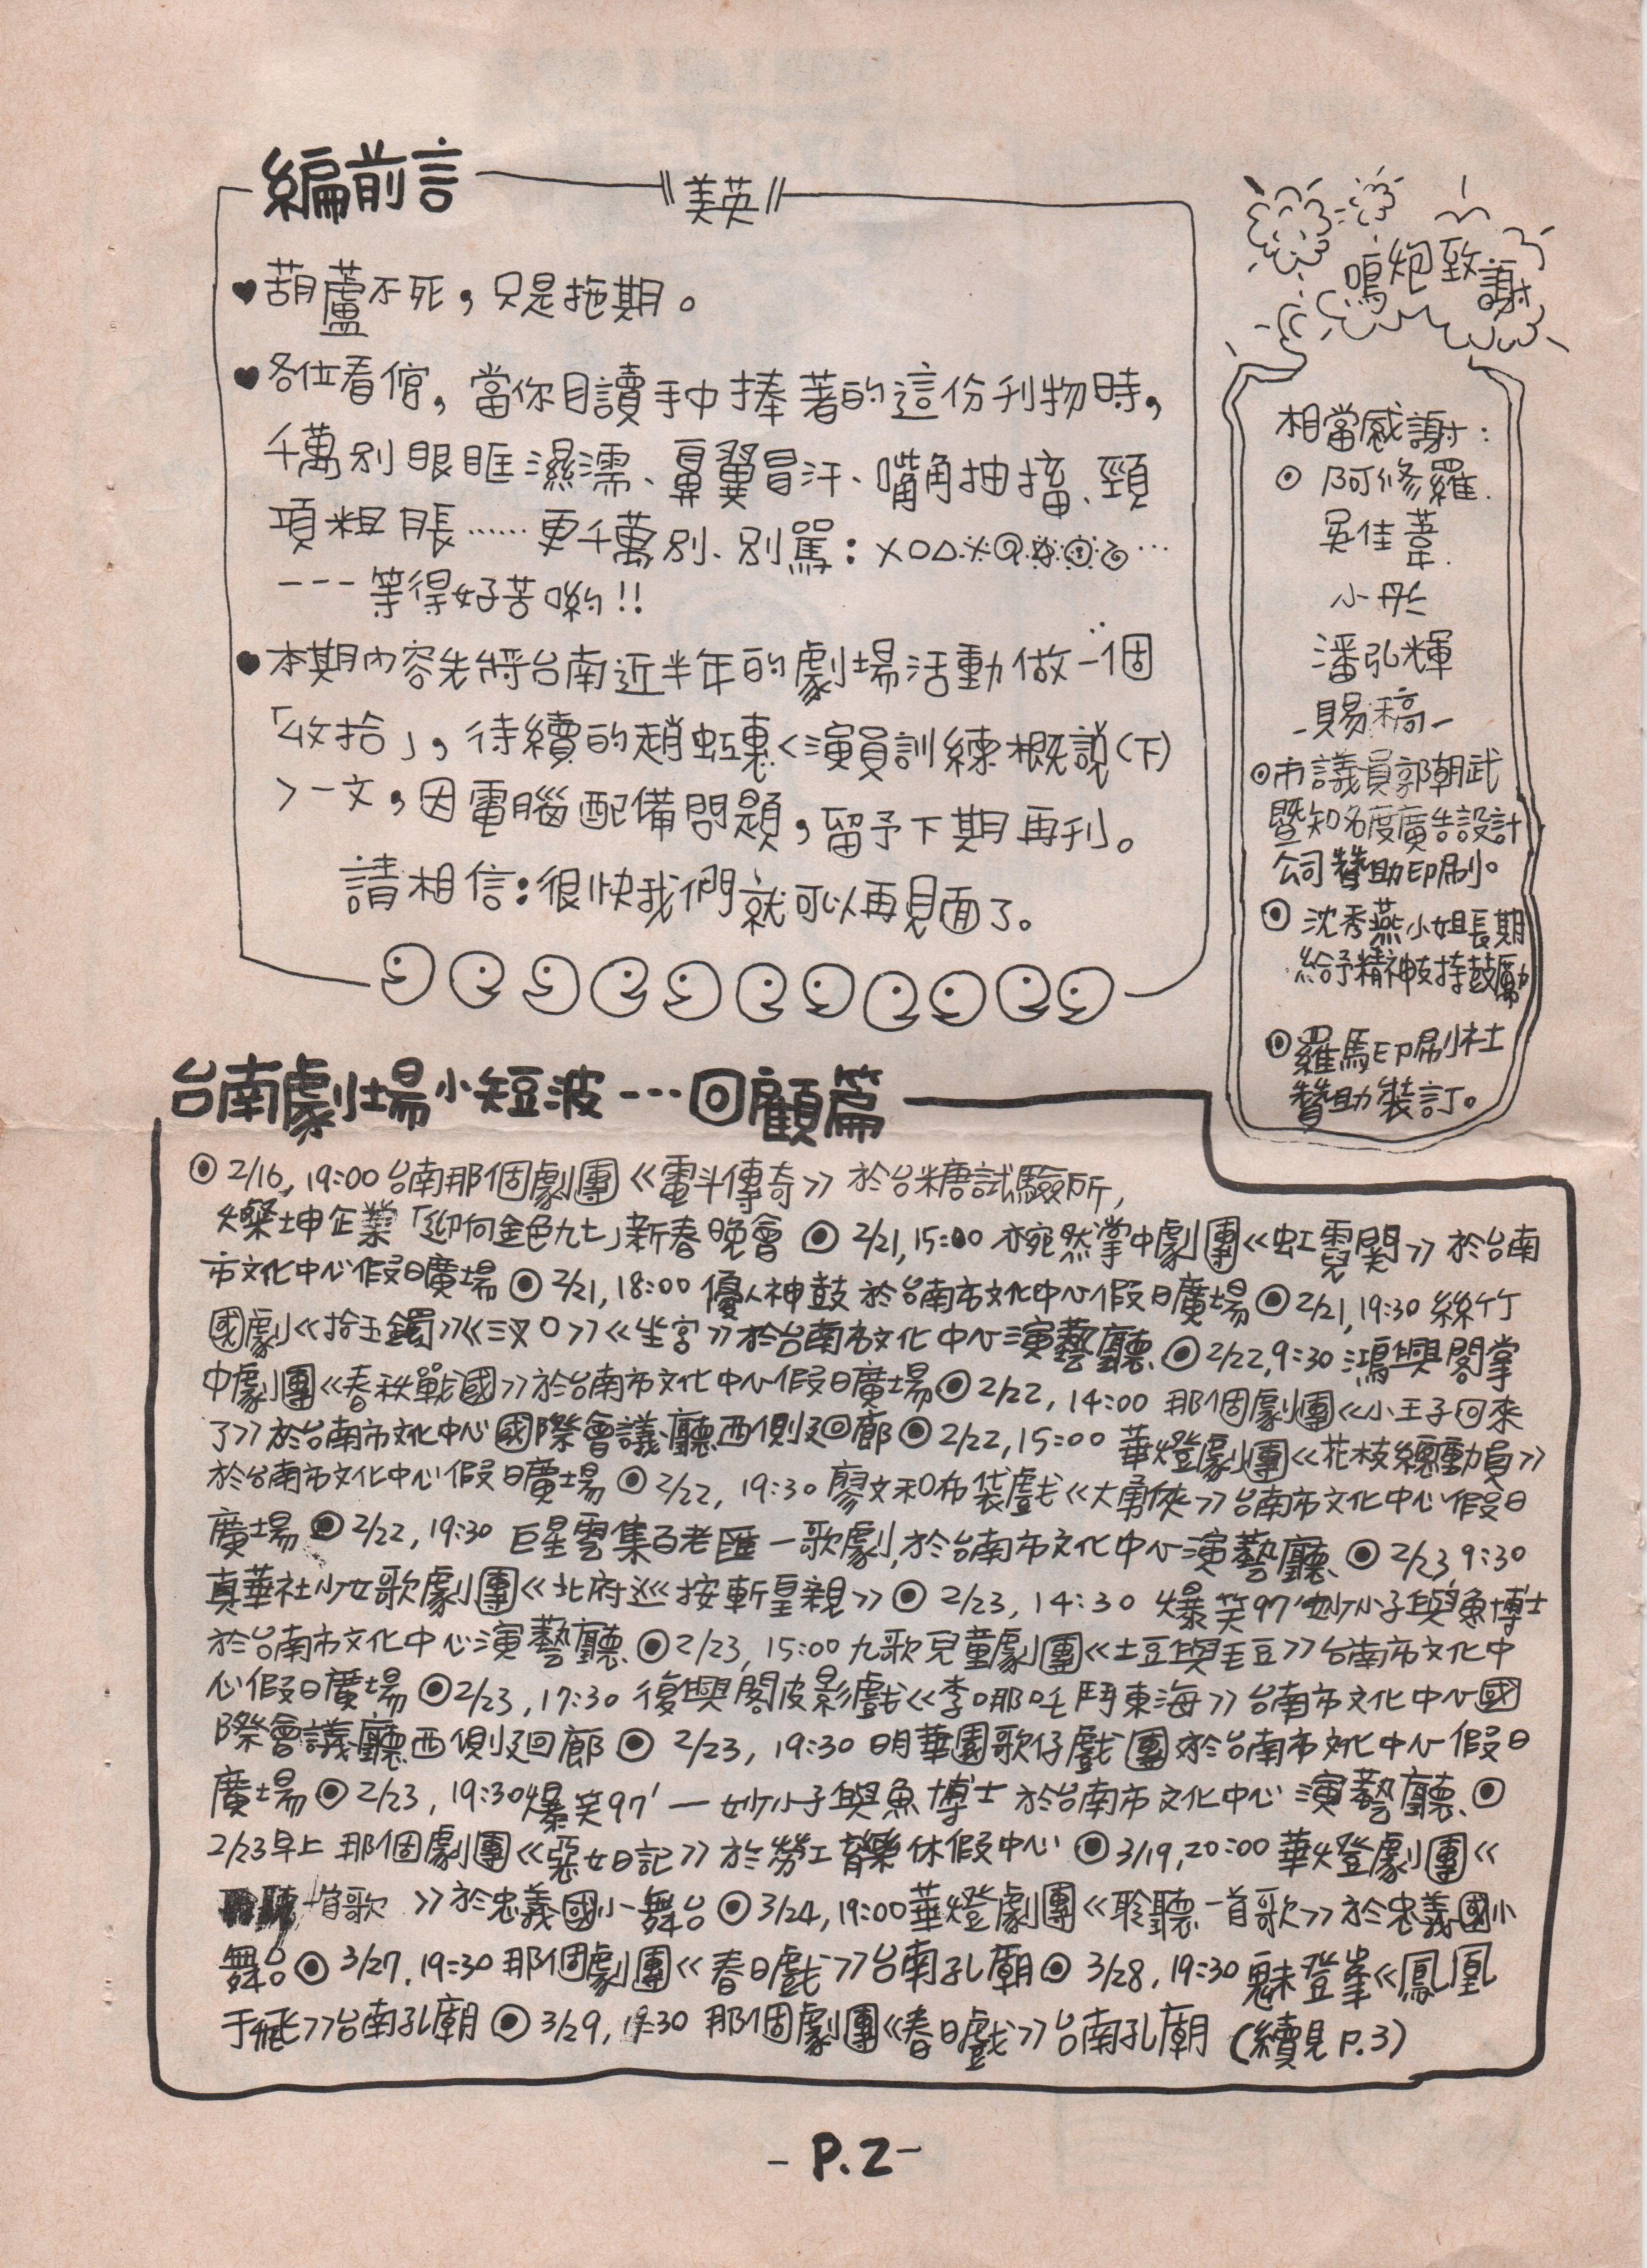 編前言
〝美英〞
♥葫蘆不死，只是拖期。
♥各位看倌，當你目讀手中捧著的這份刊物時，
千萬別眼眶濕濡、鼻翼冒汗、嘴角抽搐、頸
項粗脹……更千萬別、別罵：×○△
---等得好苦喲!!
♥本期內容先將台南近半年的劇場活動做一個
「收拾」，待續的趙虹惠＜演員訓練概說(下)
＞一文，因電腦配備問題，留予下期再刊。
請相信：很快我們就可以再見面了。
鳴炮致謝
相當感謝：
⊙阿修羅.
吳佳葦.
小彤
潘弘輝
-賜稿-
⊙市議員郭朝武
暨知名度廣告設計
公司贊助印刷。
⊙沈秀燕小姐長期
給予精神支持鼓勵
⊙羅馬印刷社
贊助裝訂。
台南劇場小短波---回顧篇
⊙2/16, 19:00 台南那個劇團《電斗傳奇》於台糖試驗所,
燦坤企業「迎向金色九七」新春晚會 ⊙ 2/21, 15:00 亦宛然掌中劇團《虹霓關》於台南
市文化中心假日廣場 ⊙ 2/21, 18:00 優人神鼓於台南市文化中心假日廣場 ⊙ 2/21, 19:30 絲竹
國劇《拾玉鐲》《三汊口》《坐宮》於台南市文化中心演藝廳 ⊙ 2/22, 9:30 鴻興閣掌
中劇團《春秋戰國》於台南市文化中心假日廣場 ⊙ 2/22, 14:00 那個劇團《小王子回來
了》於台南市文化中心國際會議廳西側迴廊 ⊙ 2/22, 15:00 華燈劇團《花枝總動員》
於台南市文化中心假日廣場 ⊙ 2/22, 19:30 廖文和布袋戲《大勇俠》台南市文化中心假日
廣場 ⊙ 2/22, 19:30 巨星雲集百老匯一歌劇,於台南市文化中心演藝廳 ⊙ 2/23, 9:30
真華社少女歌劇團《北府巡按斬皇親》⊙ 2/23, 14:30 爆笑97'妙小子與魚博士
於台南市文化中心演藝廳 ⊙ 2/23, 15:00 九歌兒童劇團《土豆與毛豆》台南市文化中
心假日廣場 ⊙ 2/23, 17:30 復興閣皮影戲《李哪吒鬥東海》台南市文化中心國
際會議廳西側迴廊 ⊙ 2/23, 19:30 明華園歌仔戲團於台南市文化中心假日
廣場 ⊙ 2/23, 19:30 爆笑97'一妙小子與魚博士於台南市文化中心演藝廳 ⊙
2/23早上 那個劇團《惡女日記》於勞工育樂休假中心 ⊙ 3/19, 20:00 華燈劇團《
聆聽一首歌》於忠義國小舞台 ⊙ 3/24, 19:00 華燈劇團《聆聽一首歌》於忠義國小
舞台 ⊙ 3/27, 19:30 那個劇團《春日戲》台南孔廟 ⊙ 3/28, 19:30 魅登峯《鳳凰
于飛》台南孔廟 ⊙ 3/29, 19:30 那個劇團《春日戲》台南孔廟 (續見P.3)
- P.2 -